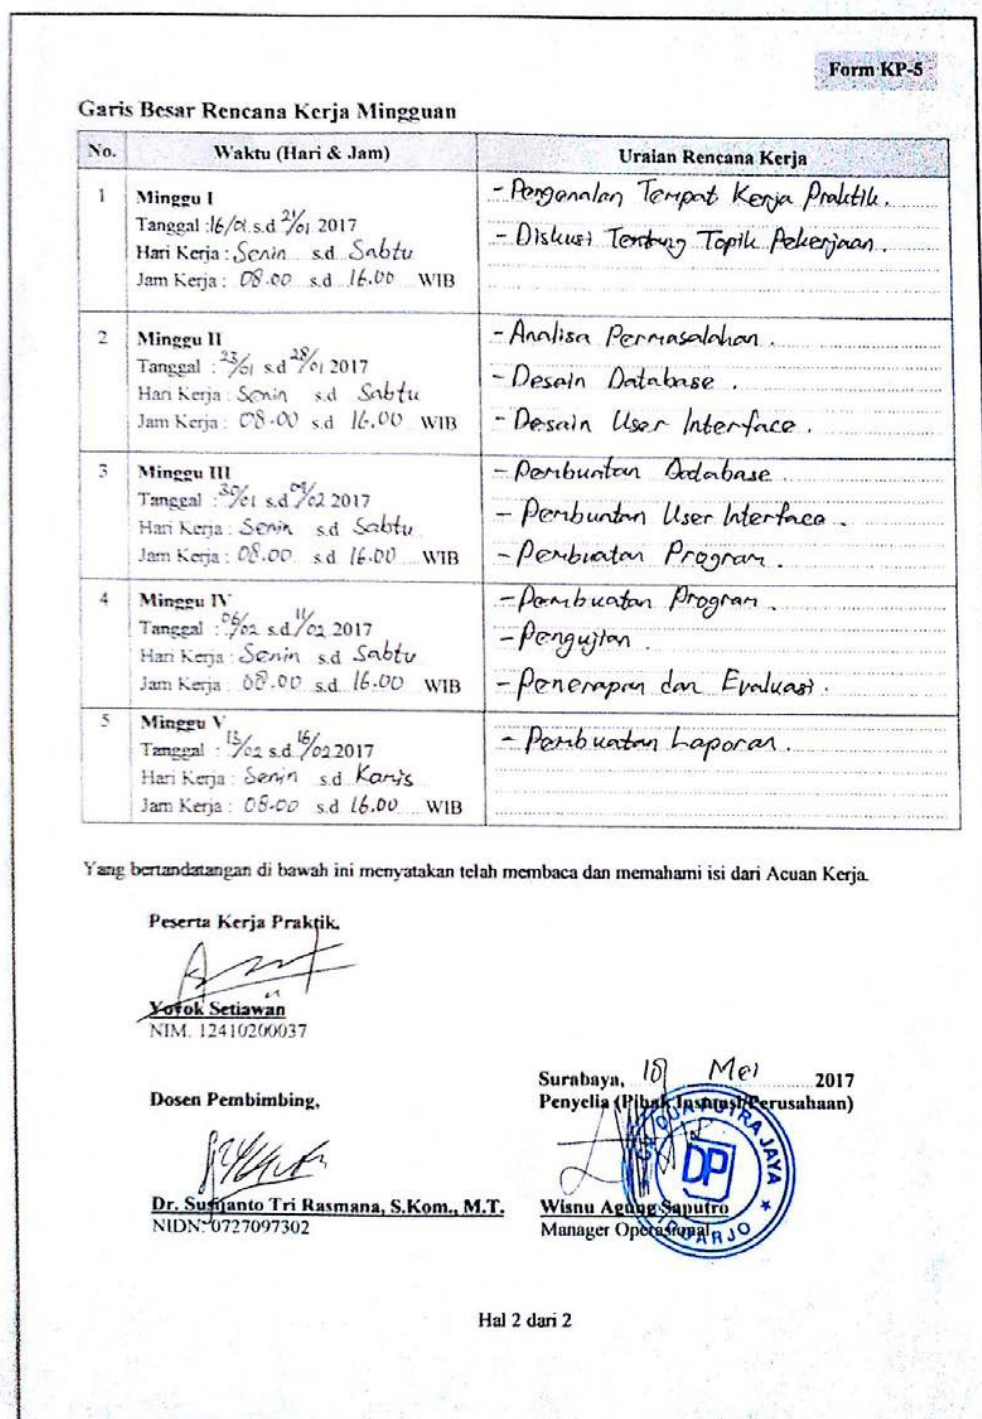 Form KP-5
Garis Besar Rencana Kerja Mingguan
No. Waktu (Hari & Jam) Uraian Rencana Kerja
1 Minggu I
Tanggal : 16/01 s.d 21/01 2017
Hari Kerja : Senin s.d Sabtu
Jam Kerja : 08.00 s.d 16.00 WIB
- Pengenalan Tempat Kerja Praktik.
- Diskusi Tentang Topik Pekerjaan.
2 Minggu II
Tanggal : 23/01 s.d 28/01 2017
Hari Kerja : Senin s.d Sabtu
Jam Kerja : 08.00 s.d 16.00 WIB
- Analisa Permasalahan.
- Desain Database.
- Desain User Interface.
3 Minggu III
Tanggal : 30/01 s.d 04/02 2017
Hari Kerja : Senin s.d Sabtu
Jam Kerja : 08.00 s.d 16.00 WIB
- Pembuatan Database
- Pembuatan User Interface.
- Pembuatan Program.
4 Minggu IV
Tanggal : 06/02 s.d 11/02 2017
Hari Kerja : Senin s.d Sabtu
Jam Kerja : 08.00 s.d 16.00 WIB
- Pembuatan Program.
- Pengujian.
- Penerapan dan Evaluasi.
5 Minggu V
Tanggal : 13/02 s.d 16/02 2017
Hari Kerja : Senin s.d Kamis
Jam Kerja : 08.00 s.d 16.00 WIB
- Pembuatan Laporan.
Yang bertandatangan di bawah ini menyatakan telah membaca dan memahami isi dari Acuan Kerja.
Peserta Kerja Praktik,
Setiawan
NIM. 12410200037
Surabaya, Mei 2017
Dosen Pembimbing,
Penyelia (Pihak Instansi/Perusahaan)
PUTRA JAYA
DP
Dr. Susijanto Tri Rasmana, S.Kom., M.T.
NIDN. 0727097302
Wisnu Agung Saputro
Manager Operasional
Hal 2 dari 2